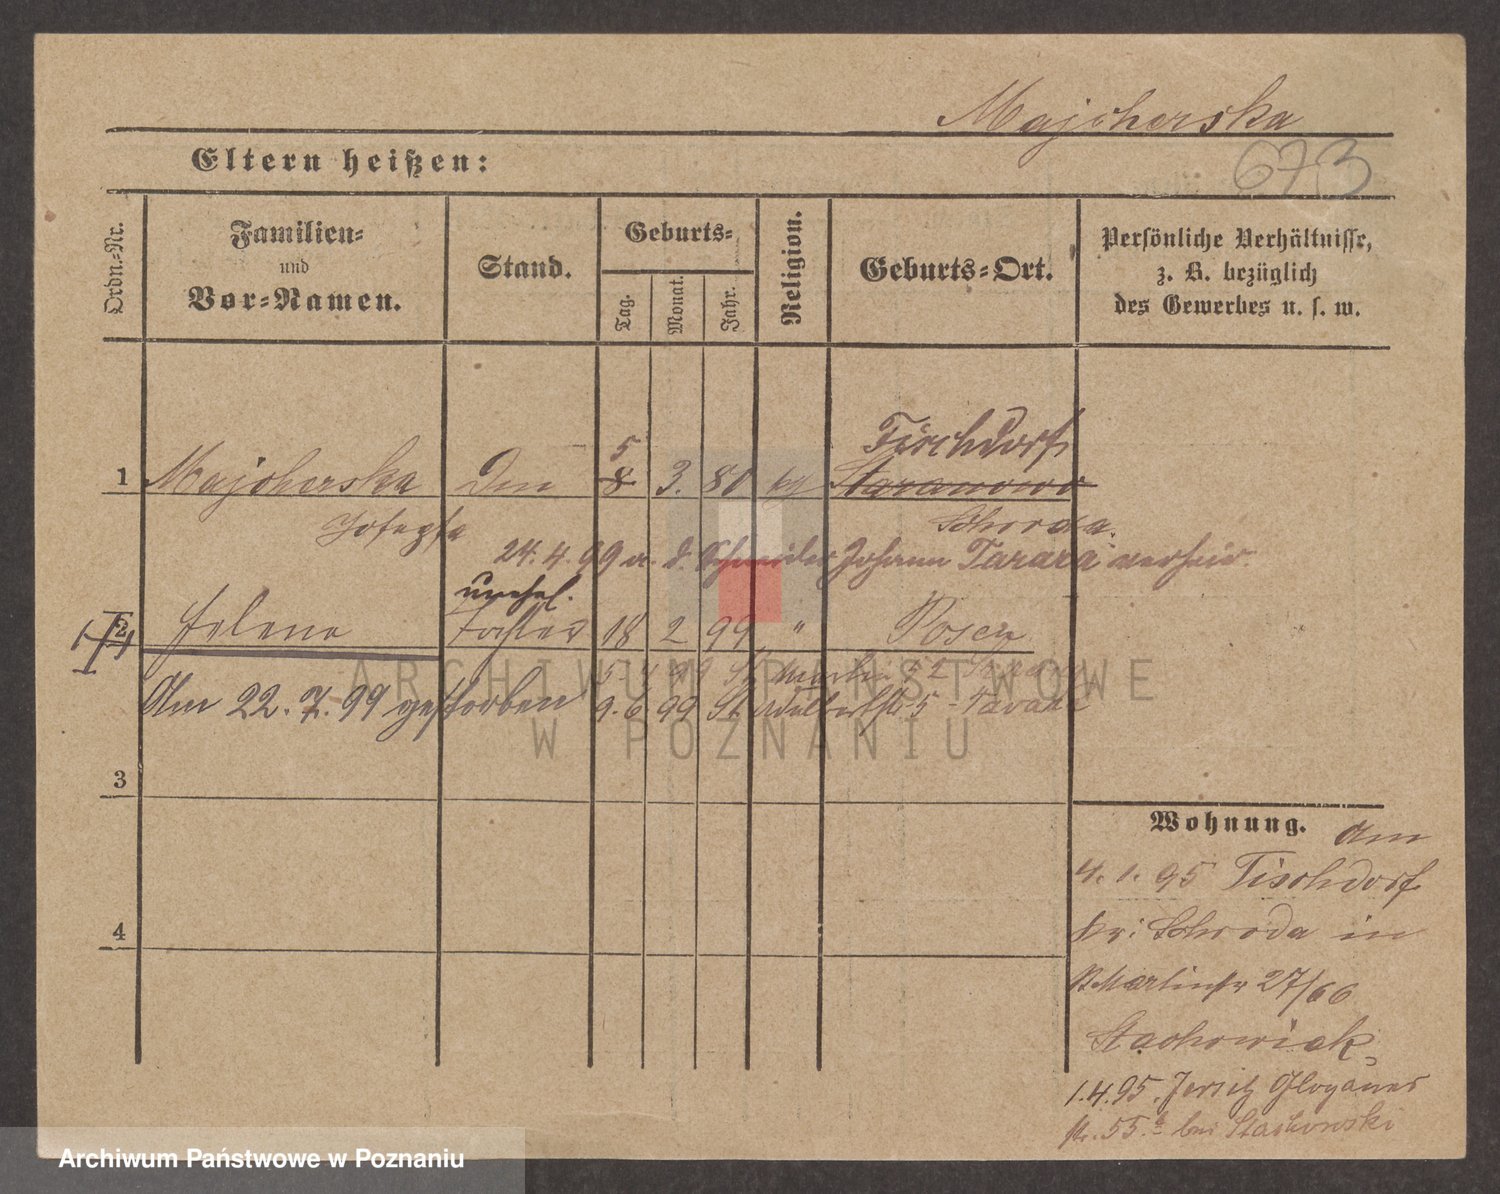 Majcherska
Eltern heißen:
673
Ordn.-Nr.
Familien-
und
Vor-Namen.
Stand.
Geburts-
Tag.
Monat.
Jahr.
Religion.
Geburts-Ort.
Persönliche Verhältnisse,
z. B. bezüglich
des Gewerbes u. s. w.
Tischdorf
5
1 Majcherska Dm 8 3. 80 kg Staranowo
Josepha Schroda.
24. 4. 99 m. d. Schneider Johann Tarara verheir.
unehel.
2 Helene Tochter 18 2 99 " Posen
99 St. Martin
Am 22. 7. 99 gestorben 9. 6 99 St. Adalbertstr 5 - Tarara
3
4
Wohnung. Am
4. 1. 95 Tischdorf
Kr: Schroda in
St Martinstr 27/66
Stachowiak
1.4.95. Jersitz Glogauer
str. 55.b bei Stachowski
ARCHIWUM PAŃSTWOWE
W POZNANIU
Archiwum Państwowe w Poznaniu